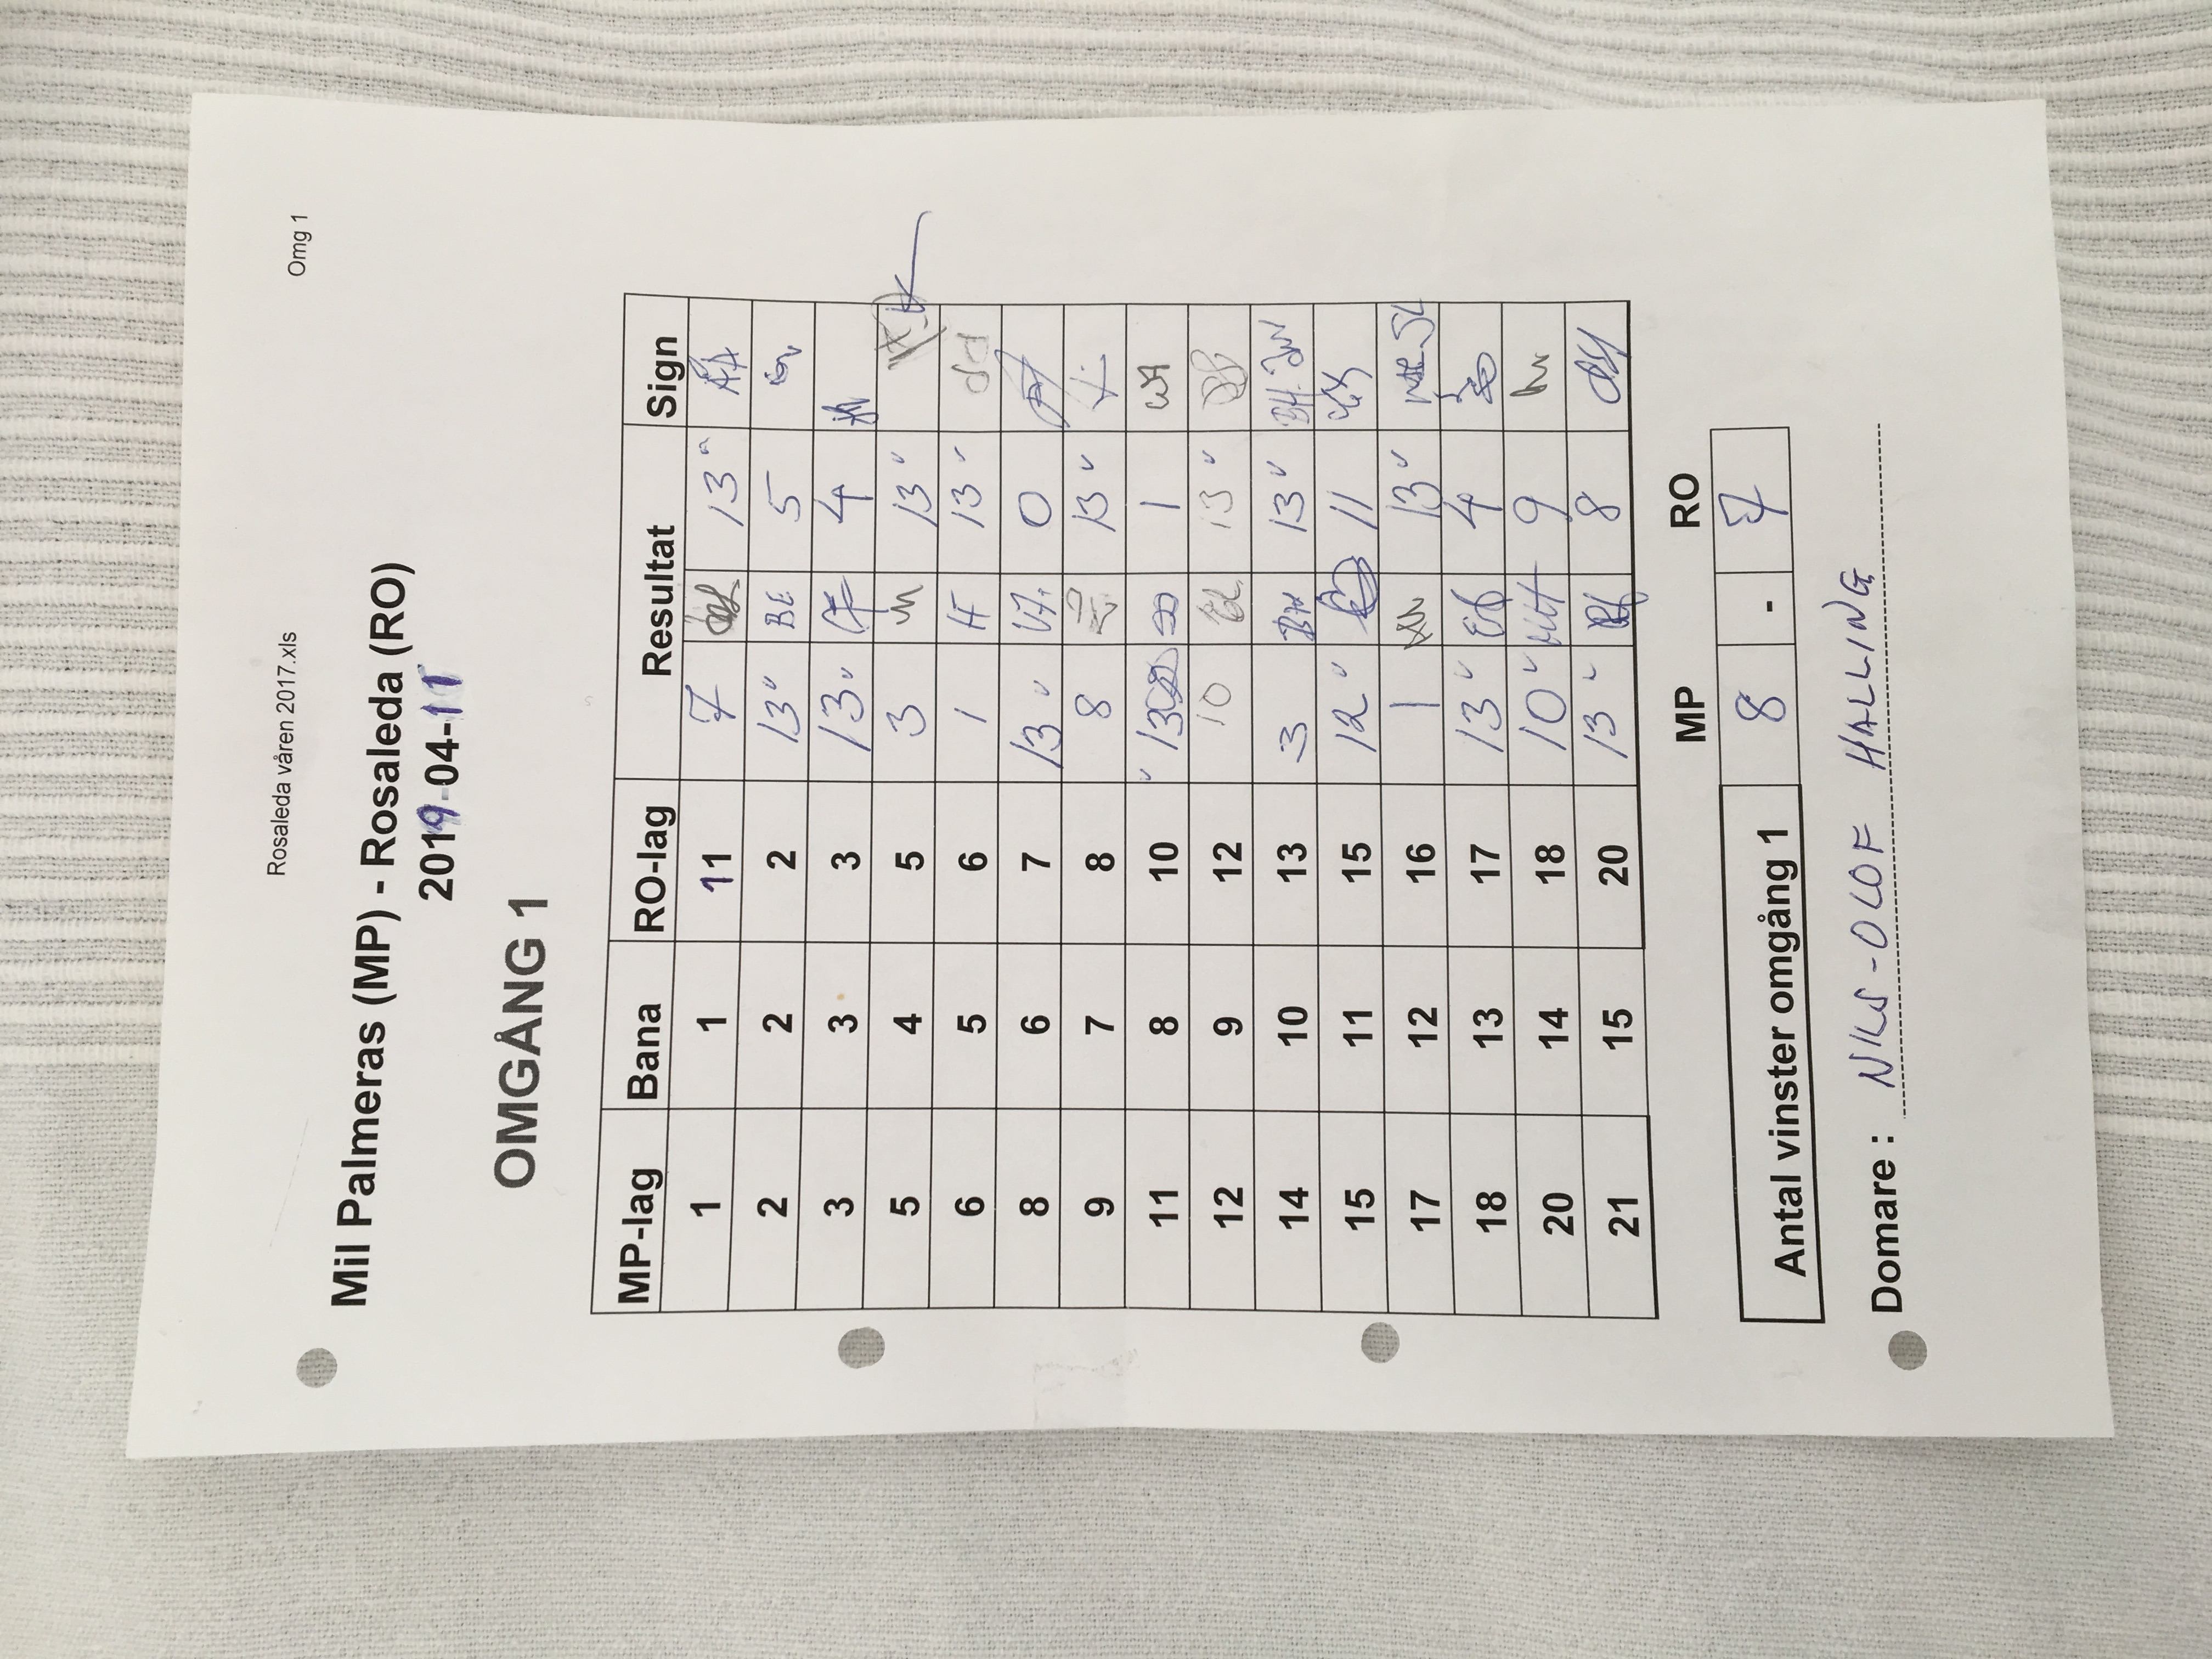 Rosaleda våren 2017.xls Omg 1
Mil Palmeras (MP) - Rosaleda (RO)
2019-04-11
OMGÅNG 1
MP-lag Bana RO-lag Resultat Sign
1 1 11 7 13
2 2 2 13 BE 5
3 3 3 13 4
5 4 5 3 13
6 5 6 1 13
8 6 7 13 0
9 7 8 8 13
11 8 10 13 1
12 9 12 10 13
14 10 13 3 13
15 11 15 12 11
17 12 16 1 13
18 13 17 13 4
20 14 18 10 9
21 15 20 13 8
MP RO
Antal vinster omgång 1 8 - 7
Domare : NILS-OLOF HALLING